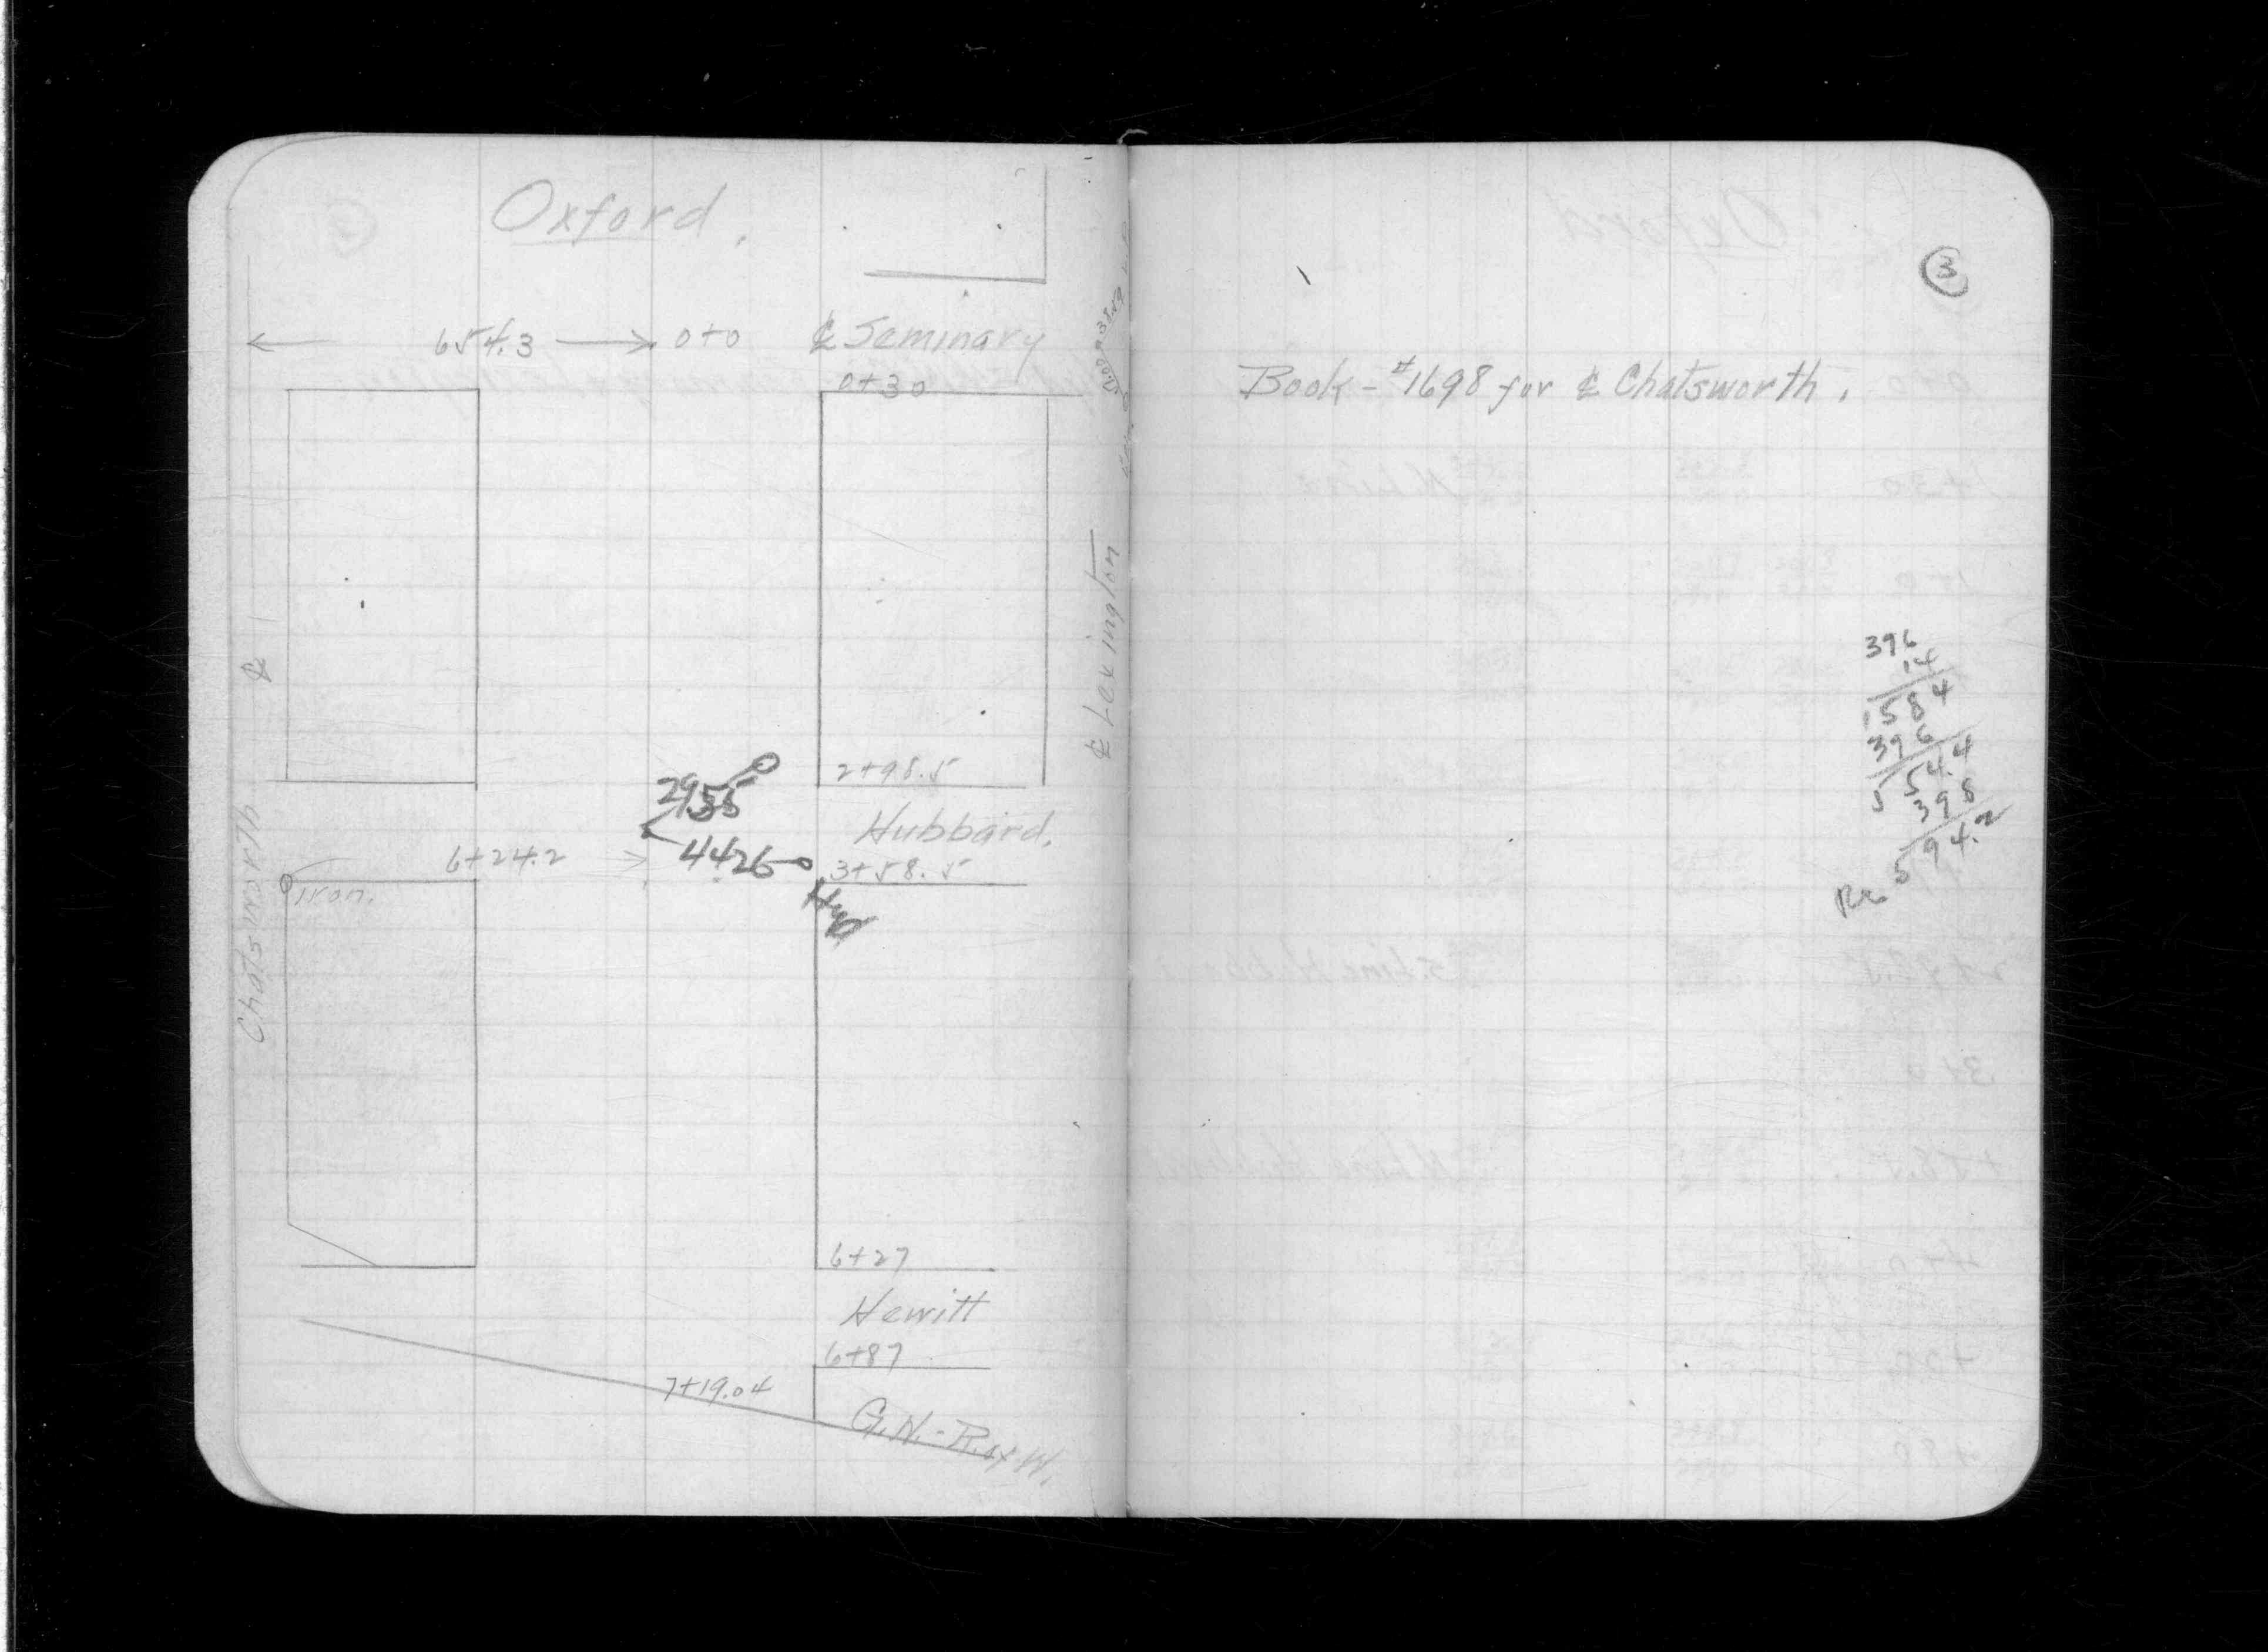 Oxford.
← 654.3 → 0+0 ℄ Seminary
0+30
℄ Lexington
℄ Chatsworth
2+98.5
2955
Hubbard.
6+24.2
4426
3+58.5
Iron.
Hub
6+27
Hewitt
6+87
7+19.04
G.N.-R.of W.
3
Book - #1698 for ℄ Chatsworth.
396
14
1584
396
554.4
398
594.2